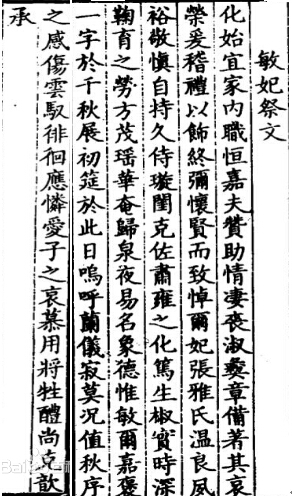 敏妃祭文
化始宜家內職恒嘉夫贊助情凄喪淑懿章備著其哀
榮爰稽禮以飾終彌懷賢而致悼爾妃張雅氏溫良夙
裕敬慎自持久侍璇閨克佐肅雍之化篤生椒寔時深
鞠育之勞方茂瑶華奄歸泉夜易名象德惟敏爾嘉褒
一字於千秋展初筵於此日嗚呼蘭儀寂莫况值秋序
之感傷雲馭徘徊應憐愛子之哀慕用將牲醴尚克歆
承